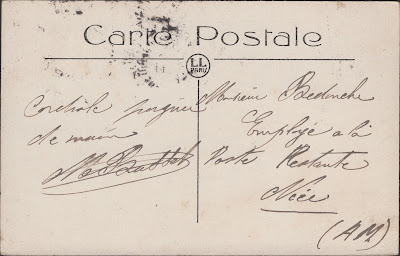 Carte Postale
LL
PARIS
Cordiale poignée
de main
Monsieur
Employé à la
Poste Restante
Nice
(AM)